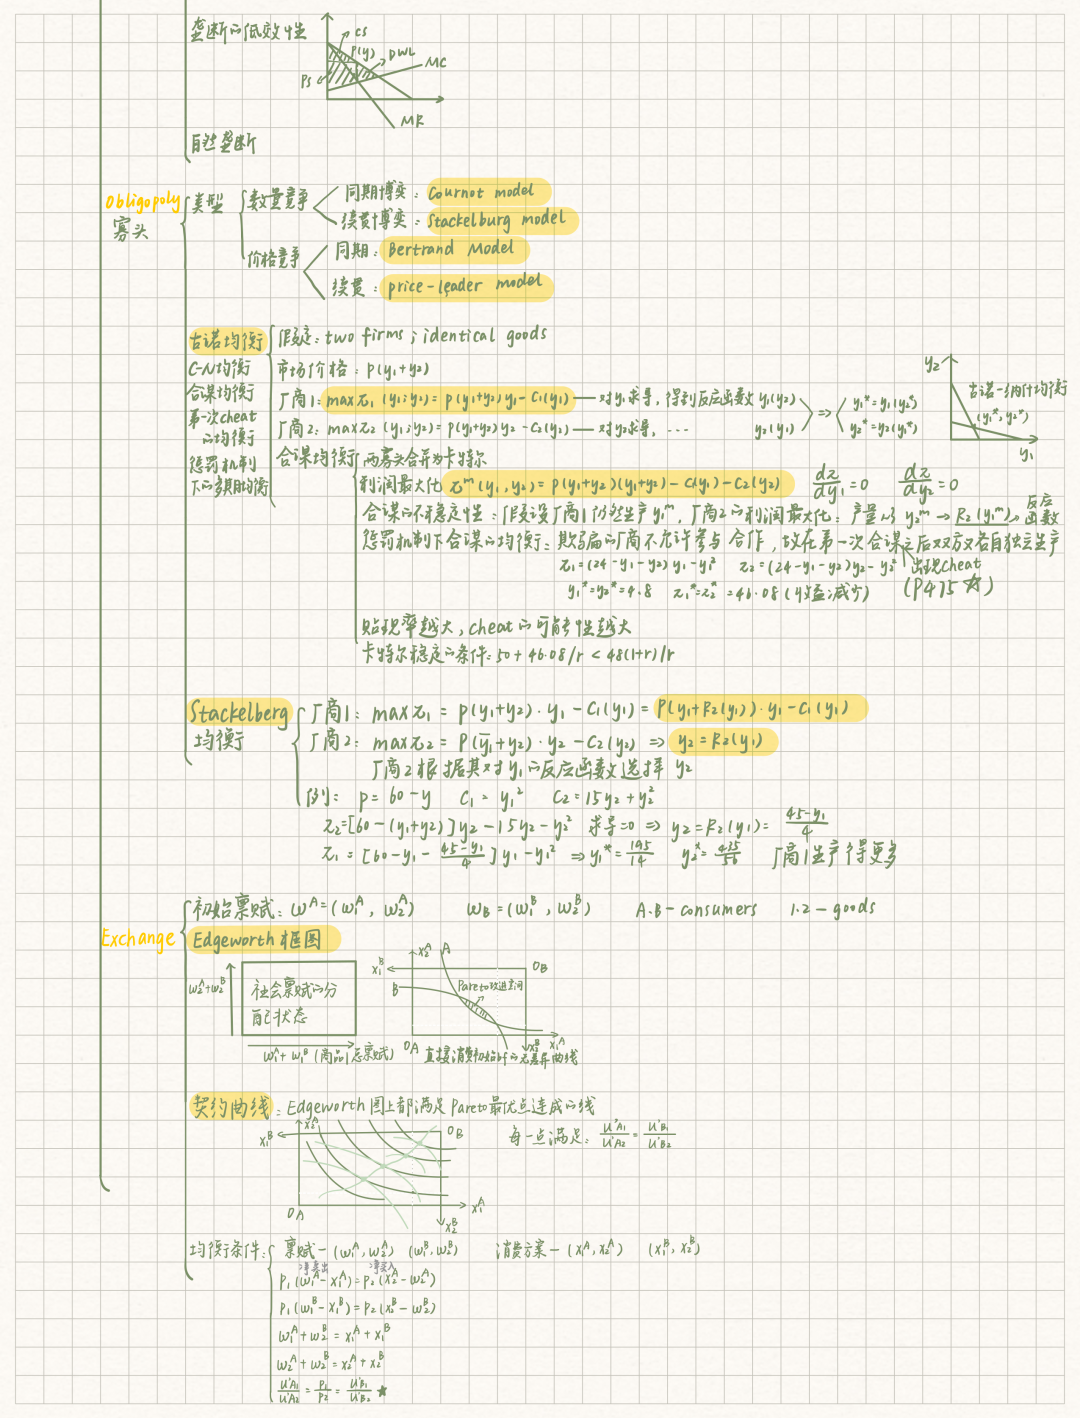 垄断的低效性
CS
P(y)
DWL
MC
PS
MR
自然垄断
Obligopoly
寡头
类型
数量竞争
同期博弈：Cournot model
续贯博弈：Stackelburg model
价格竞争
同期：Bertrand Model
续贯：price-leader model
古诺均衡
C-N均衡
合谋均衡
第一次cheat
的均衡
惩罚机制
下的多期均衡
假定：two firms；identical goods
市场价格：P(y₁+y₂)
厂商1：max π₁ (y₁;y₂) = P(y₁+y₂)y₁ - C₁(y₁) — 对y₁求导，得到反应函数 y₁(y₂)
厂商2：max π₂ (y₁;y₂) = P(y₁+y₂)y₂ - C₂(y₂) — 对y₂求导，… y₂(y₁)
=> y₁* = y₁(y₂*)
y₂* = y₂(y₁*)
y₂
古诺-纳什均衡
(y₁*, y₂*)
y₁
合谋均衡
两寡头合并为卡特尔
利润最大化 πᵐ(y₁,y₂) = P(y₁+y₂)(y₁+y₂) - C(y₁) - C₂(y₂) dπ/dy₁ = 0 dπ/dy₂ = 0
合谋的不稳定性：假设厂商1仍然生产y₁ᵐ，厂商2的利润最大化：产量从 y₂ᵐ → R₂(y₁ᵐ) 反应函数
惩罚机制下合谋的均衡：欺骗的厂商不允许参与合作，故在第一次合谋之后双方各自独立生产
出现cheat
π₁ = (24-y₁-y₂)y₁ - y₁² π₂ = (24-y₁-y₂)y₂ - y₂²
y₁* = y₂* = 4.8 π₁* = π₂* = 46.08 (收益减少) (P475 ☆)
贴现率越大，cheat的可能性越大
卡特尔稳定的条件：50 + 46.08/r < 48(1+r)/r
Stackelberg
均衡
厂商1：max π₁ = P(y₁+y₂)·y₁ - C₁(y₁) = P(y₁+R₂(y₁))·y₁ - C₁(y₁)
厂商2：max π₂ = P(ȳ₁+y₂)·y₂ - C₂(y₂) => y₂ = R₂(y₁)
厂商2根据其对y₁的反应函数选择 y₂
例：P = 60 - y C₁ = y₁² C₂ = 15y₂ + y₂²
π₂ = [60 - (y₁+y₂)]y₂ - 15y₂ - y₂² 求导=0 => y₂ = R₂(y₁) = (45-y₁)/4
π₁ = [60 - y₁ - (45-y₁)/4]y₁ - y₁² => y₁* = 195/14 y₂* = 435/56 厂商1生产得更多
Exchange
初始禀赋：ωᴬ = (ω₁ᴬ, ω₂ᴬ) ωB = (ω₁ᴮ, ω₂ᴮ) A.B - consumers 1.2 - goods
Edgeworth 框图
ω₂ᴬ+ω₂ᴮ
社会禀赋的分
配状态
ω₁ᴬ + ω₁ᴮ (商品1总禀赋)
x₂ᴬ
A
x₁ᴮ
OB
B
Pareto改进空间
OA
x₂ᴮ
x₁ᴬ
契约曲线：Edgeworth 图上都满足 Pareto最优点连成的线
每一点满足：U'A₁/U'A₂ = U'B₁/U'B₂
x₂ᴬ
x₁ᴮ
OB
OA
x₁ᴬ
x₂ᴮ
均衡条件：
禀赋 - (ω₁ᴬ, ω₂ᴬ) (ω₁ᴮ, ω₂ᴮ) 消费方案 - (x₁ᴬ, x₂ᴬ) (x₁ᴮ, x₂ᴮ)
净卖出 净买入
P₁(ω₁ᴬ - x₁ᴬ) = P₂(x₂ᴬ - ω₂ᴬ)
P₁(ω₁ᴮ - x₁ᴮ) = P₂(x₂ᴮ - ω₂ᴮ)
ω₁ᴬ + ω₂ᴮ = x₁ᴬ + x₁ᴮ
ω₂ᴬ + ω₂ᴮ = x₂ᴬ + x₂ᴮ
U'A₁/U'A₂ = P₁/P₂ = U'B₁/U'B₂ ★